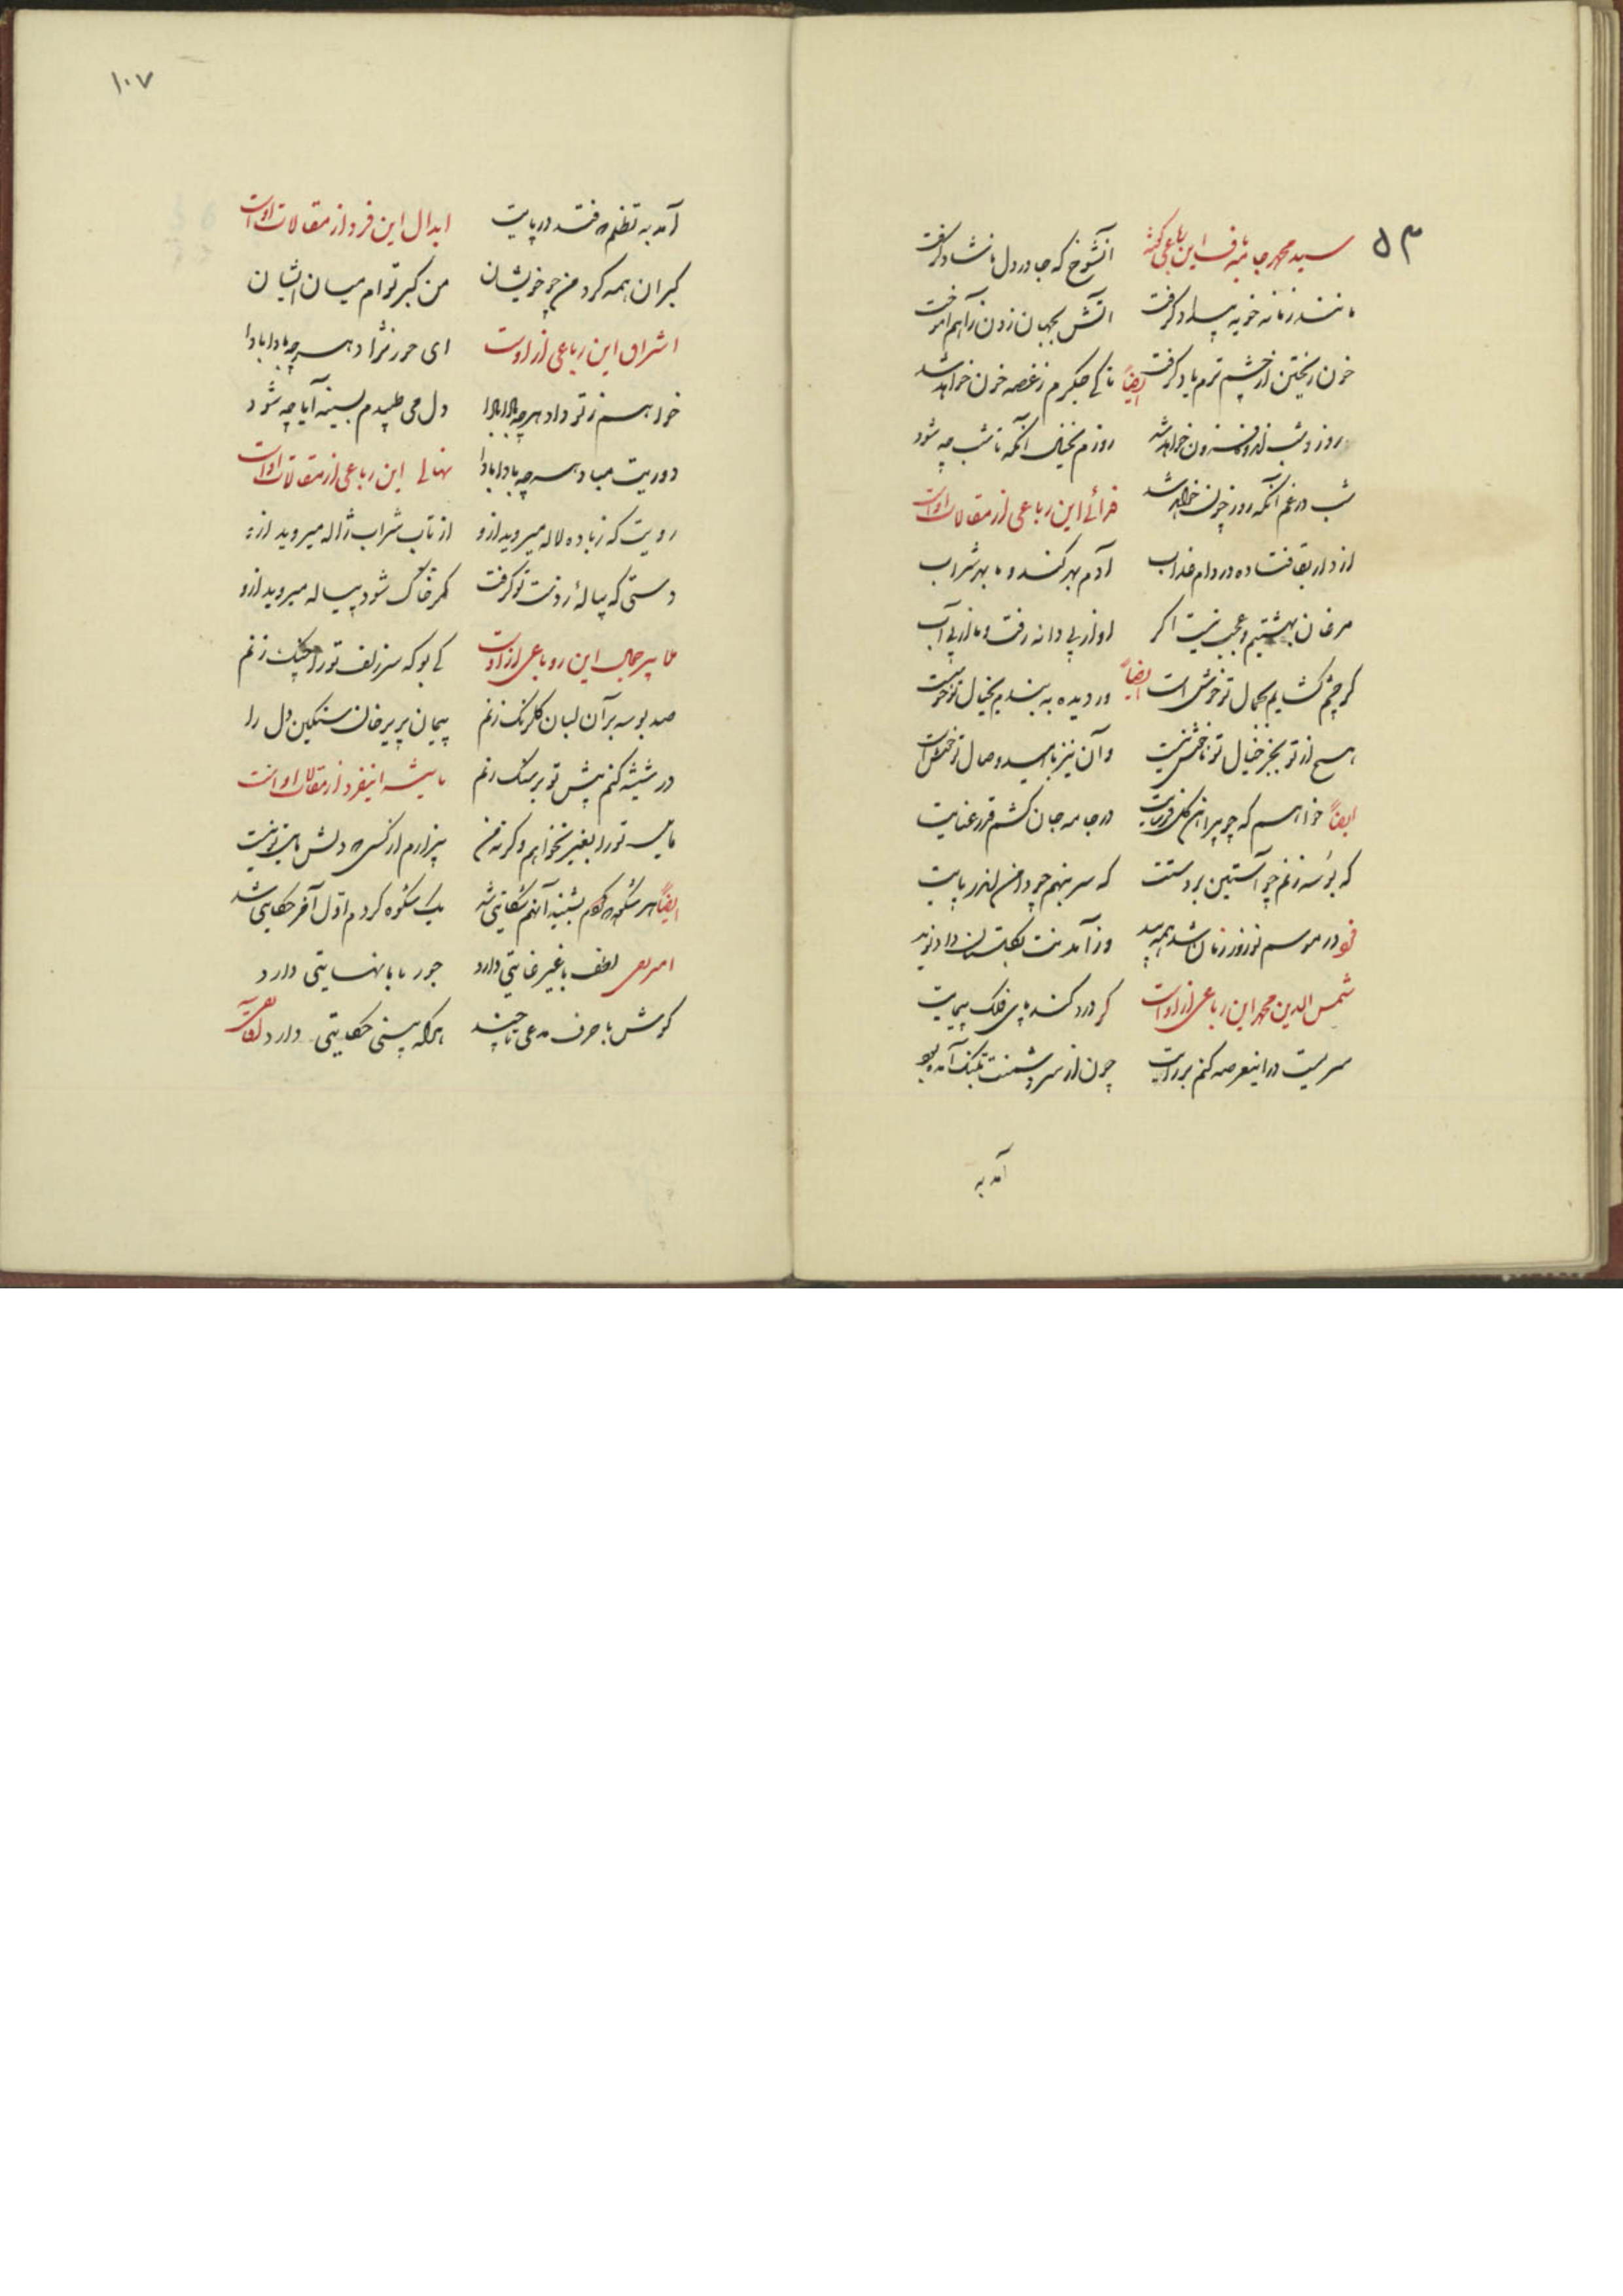 ۵۳
سید محمد جامه باف این رباعی گفته آنشوخ که جا در دل ناشاد گرفت
مانند زمانه خو به بیداد گرفت آتش بجهان زدن ز آهم آموخت
خون ریختن از چشم ترم یاد گرفت ایضاً تا کی جگرم ز غصه خون خواهد شد
روز و شب اندوه فزون خواهد شد روزم بخیال آنکه تا شب چه شود
شب در غم آنکه روز چون خواهد شد این رباعی از مقالات اوست
از دار بقا فتاده در دام عذاب آدم بهر گندم و ما بهر شراب
مرغان بهشتیم عجب نیست اگر او از پی دانه رفت و ما از پی آب
گر چشم گشایم بجمال تو خوش است ایضاً ور دیده به بندم بخیال تو خوشست
هیچ از تو بجز خیال تو ناخوش نیست وان نیز بامید وصال تو خوش است
ایضاً خواهم که چو پیراهن در جامه جان کشم قد رعنایت
که بوسه زنم چو آستین بر دستت که سر بنهم چو دامن اندر پایت
در موسم نوروز وز آمدنت بگلستان داد نوید
شمس الدین محمد این رباعی از اوست گر درد کند پای فلک پیمایت
سریست در اینعرصه کنم بر رایت چون از سر دشمنت بتنگ آمده بود
آمد به
۱۰۷
آمد به تظلم و فتد در پایت ابدال این فرد از مقالات اوست
کبر ان همه کرد من چو خویشان من کبر توام میان ایشان
اشراق این رباعی از اوست ای حور نژاد هر چه بادا بادا
خواهم ز تو داد هر چه بادا بادا دل می طپدم بسینه آیا چه شود
دوریت مباد هر چه بادا بادا نهالی این رباعی از مقالات اوست
رویت که ز باده لاله میروید ازو از تاب شراب ژاله میروید ازو
دستی که پیالهٔ ز دست تو گرفت گر خاک شود پیاله میروید ازو
پیر جمال این روباعی از اوست کی بو که سر زلف تو را چنگ زنم
صد بوسه بر آن لبان گلرنگ زنم پیمان پریرخان سنگین دل را
در شیشه کنم پیش تو بر سنگ زنم اینفرد از مقالات اوست
تو را بغیر نخواهم وگرنه من بیزارم از کسی که دلش مایل تو نیست
ایضاً هر شکوه بشنید آنهم شکایتی شد یک شکوه کردم اول آخر حکایتی شد
لطف با غیر غایتی دارد جور با ما نهایتی دارد
گوش با حرف مدعی تا چند هر که بینی حکایتی دارد